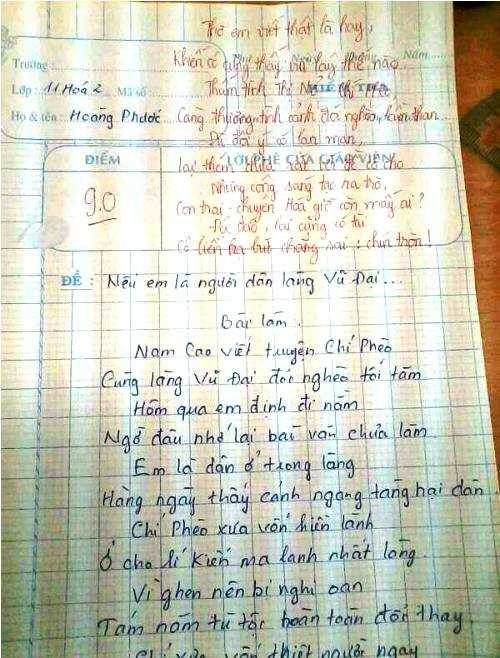 Thơ em viết thật là hay,
Khiến cô cũng thấy vui lây thế nào
Năm.......
Trường:
Thấm tình Thị Nở Chí Phèo,
Lớp: 11 Hoá 2 Mã số:
Họ & tên: Hoàng Phước
Càng thương tình cảnh đói nghèo, lầm than...
Dù đôi ý có lan man,
ĐIỂM
LỜI PHÊ CỦA GIÁO VIÊN
lại thêm chữa
Nhưng công sáng tác ra trò,
9.0
Con trai chuyên Hoá giờ còn mấy ai?
lại cũng có tài
Cô liền chàng trai: chín tròn!
ĐỀ: Nếu em là người dân làng Vũ Đại...
Bài làm.
Nam Cao viết truyện Chí Phèo
Cùng làng Vũ Đại đói nghèo tối tăm
Hôm qua em định đi nằm
Ngờ đâu nhớ lại bài văn chưa làm
Em là dân ở trong làng
Hàng ngày thấy cảnh ngang tàng hại dân
Chí Phèo xưa vốn hiền lành
Ở cho lí Kiến ma lanh nhất làng.
Vì ghen nên bị nghi oan
Tám năm tù tội hoàn toàn đổi thay
thiệt người ngay